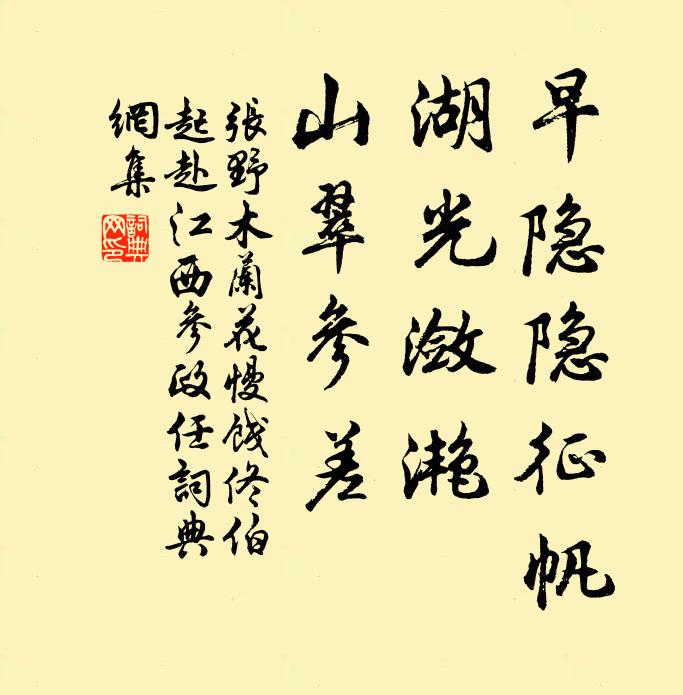 早隐隐征帆
湖光潋滟
山翠參差
張野木蘭花慢餞佟伯
起赴江西參政任詞典
網集
詞典
网印